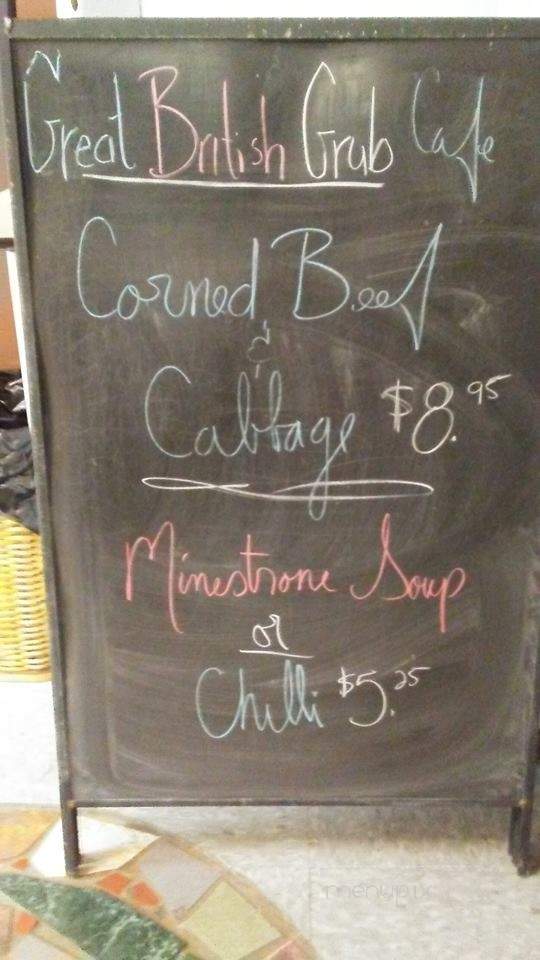 Great British Grub Cafe
Corned Beef
&
Cabbage $8.95
Minestrone Soup
or
Chilli $5.25
menupix